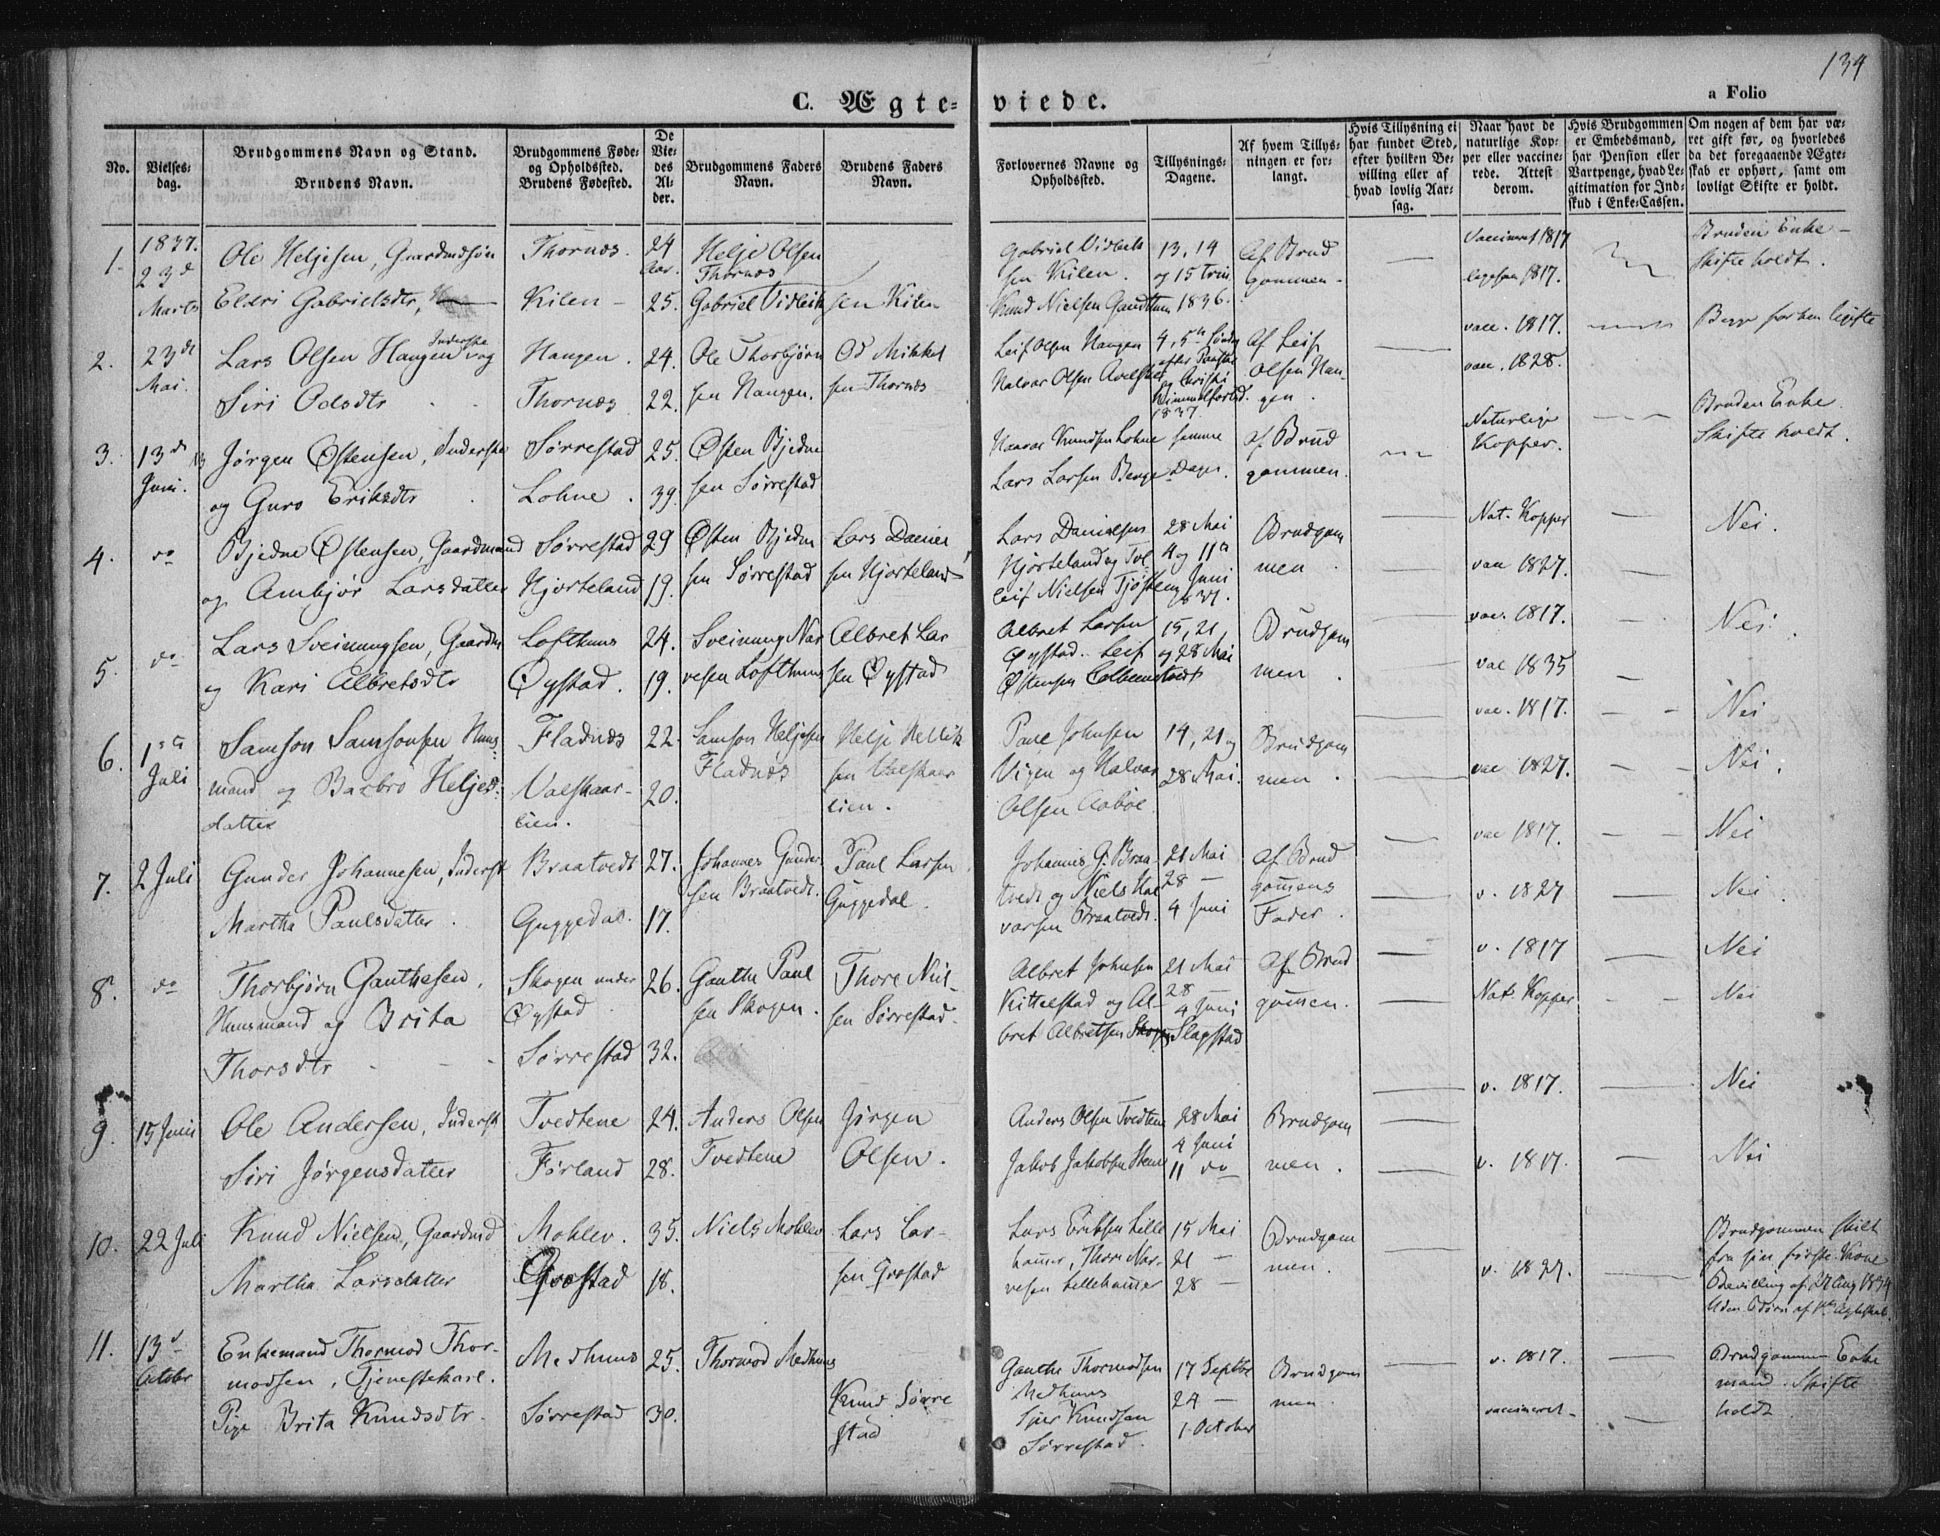 134
C. Ægteviede.
a Folio
No.
Vielsesdag.
Brudgommens Navn og Stand.
Brudens Navn.
Brudgommens Føde- og Opholdssted.
Brudens Fødested.
De Viedes Alder.
Brudgommens Faders Navn.
Brudens Faders Navn.
Forlovernes Navne og Opholdssted.
Tillysnings-Dagene.
Af hvem Tillysningen er forlangt.
Hvis Tillysning ei har fundet Sted, efter hvilken Bevilling eller af hvad lovlig Aarsag.
Naar havt de naturlige Kopper eller vaccinerede. Attest derom.
Hvis Brudgommen er Embedsmand, har Pension eller Vartpenge, hvad Legitimation for Indskud i Enke-Cassen.
Om nogen af dem har været gift før, og hvorledes da det foregaaende Ægteskab er ophørt, samt om lovligt Skifte er holdt.
1837.
1. 23d Marts
Ole Heljesen, Gaardmdsøn Thornæs 24 Aar. Helje Olsen Thornæs
Eldri Gabrielsdtr, Kilen - 25. Gabriel Vidleiksen Kilen
Gabriel Vidleiksen Kilen. 13, 14 og 15 Trin 1836. Af Brudgommen -
Knud Nielsen
Vaccineret 1817
1817.
Bruden Enke - Skifte holdt.
2. 23de Mai.
Lars Olsen Haugen Inderste og Haugen. 24. Ole Thorbjørnsen Haugen. Od Mikkelsen Thornæs
Siri Odsdtr Thornæs 22.
Leif Olsen Haugen
Halvor Olsen
4, 5te Søndag efter Paaske og Christi Himmelfartsd. 1837.
Af Leif Olsen Haugen.
vacc. 1817.
vacc. 1828.
Begge
3. 13de Juni.
Jørgen Østensen, Inderste Sørrestad 25. Østen Bjednesen Sørrestad
og Guro Eriksdtr Lohne. 39.
Knudsen Lohne samme Dage. af Brudgommen.
Lars Larsen Berge
Naturlige Kopper.
Bruden Enke. Skifte holdt.
4. do
Bjedne Østensen, Gaardmand Sørrestad 29 Østen Bjednesen Sørrestad Lars Danielsen Hjorteland
og Ambjør Larsdatter Hjorteland 19.
Lars Danielsen Hjorteland og Tolleif Nielsen Tjøstem
28 Mai 4 og 11te Juni 1837.
Brudgommen.
Nat. Kopper
vacc 1827.
Nei.
5. do
Lars Sveinungsen, Gaardm Lofthuus 24. Sveinung Narvesen Lofthuus Albret Larsen Øystad
og Kari Albretsdtr Øystad. 19.
Albret Larsen Øystad. Leif Østensen
15, 21, og 28 Mai
Brudgommen.
vac. 1817.
vac 1835
Nei.
6. 1ste Juli
Samson Samsonsen Huusmand og Barbro Heljesdatter
Fladnæs 22. Samson Heljesen Fladnæs Helje Helliksen Valskaarlien.
Valskaarlien. 20.
Paul Johnsen Vigen og Halvor Olsen Aaboe
14, 21 og 28 Mai.
Brudgommen.
vac. 1817.
vac 1827.
Nei
Nei.
7. 2 Juli
Gunder Johannesen, Inderst Braatvedt 27. Johannes Gundersen Braatvedt. Paul Larsen Guggedal.
Martha Paulsdatter. Guggedal. 17.
Johannis G. Braatvedt og Niels Halvorsen Braatvedt.
21 Mai
28 -
4 Juni
Af Brudgommens Fader.
vac 1817.
v. 1827
Nei
Nei
8. do
Thorbjørn Gauthesen, Huusmand og Brita Thorsdtr
Skogen under Øystad 26. Gauthe Paulsen Skogen. Thore Nielsen Sørrestad.
Sørrestad 32.
Albret Johnsen Kittelstad og Albret Albretsen Slagstad
21 Mai
28 -
4 Juni
Af Brudgommen.
v. 1817
Nat. Kopper
Nei
Nei
9. 15 Juni
Ole Andersen, Inderst Tvedtene 24. Anders Olsen Tvedtene Jørgen Olsen.
Siri Jørgensdatter Førland 28.
Anders Olsen Tvedtene
Jakob Jakobsen
28 Mai
4 Juni
11 do
Brudgommen.
v. 1817.
v. 1817.
Nei
Nei
10. 22 Juli
Knud Nielsen, Gaardmd Mohlev. 35. Niels Mohlev Lars Larsen Græstad
Martha Larsdatter Græstad 18.
Lars Eriksen Lillehamer, Thore Narvesen Lillehamer
15 Mai
21 -
28 -
Brudgommen.
v. 1827.
Brudgommen skilt fra sin første Kone Bevilling af 27 Aug 1834
11. 13d October
Enkemand Thormod Thormodsen, Tjenestekarl. Medhuus 25. Thormod Medhuus
Pige Brita Knudsdtr. Sørrestad 30. Knud Sørrestad
Gauthe Thormodsen Medhuus
Knudsen Sørrestad.
17 Septbr
24 -
1 October
Brudgommen.
v. 1817.
vaccineret -
Brudgommen Enkemand. Skifte holdt